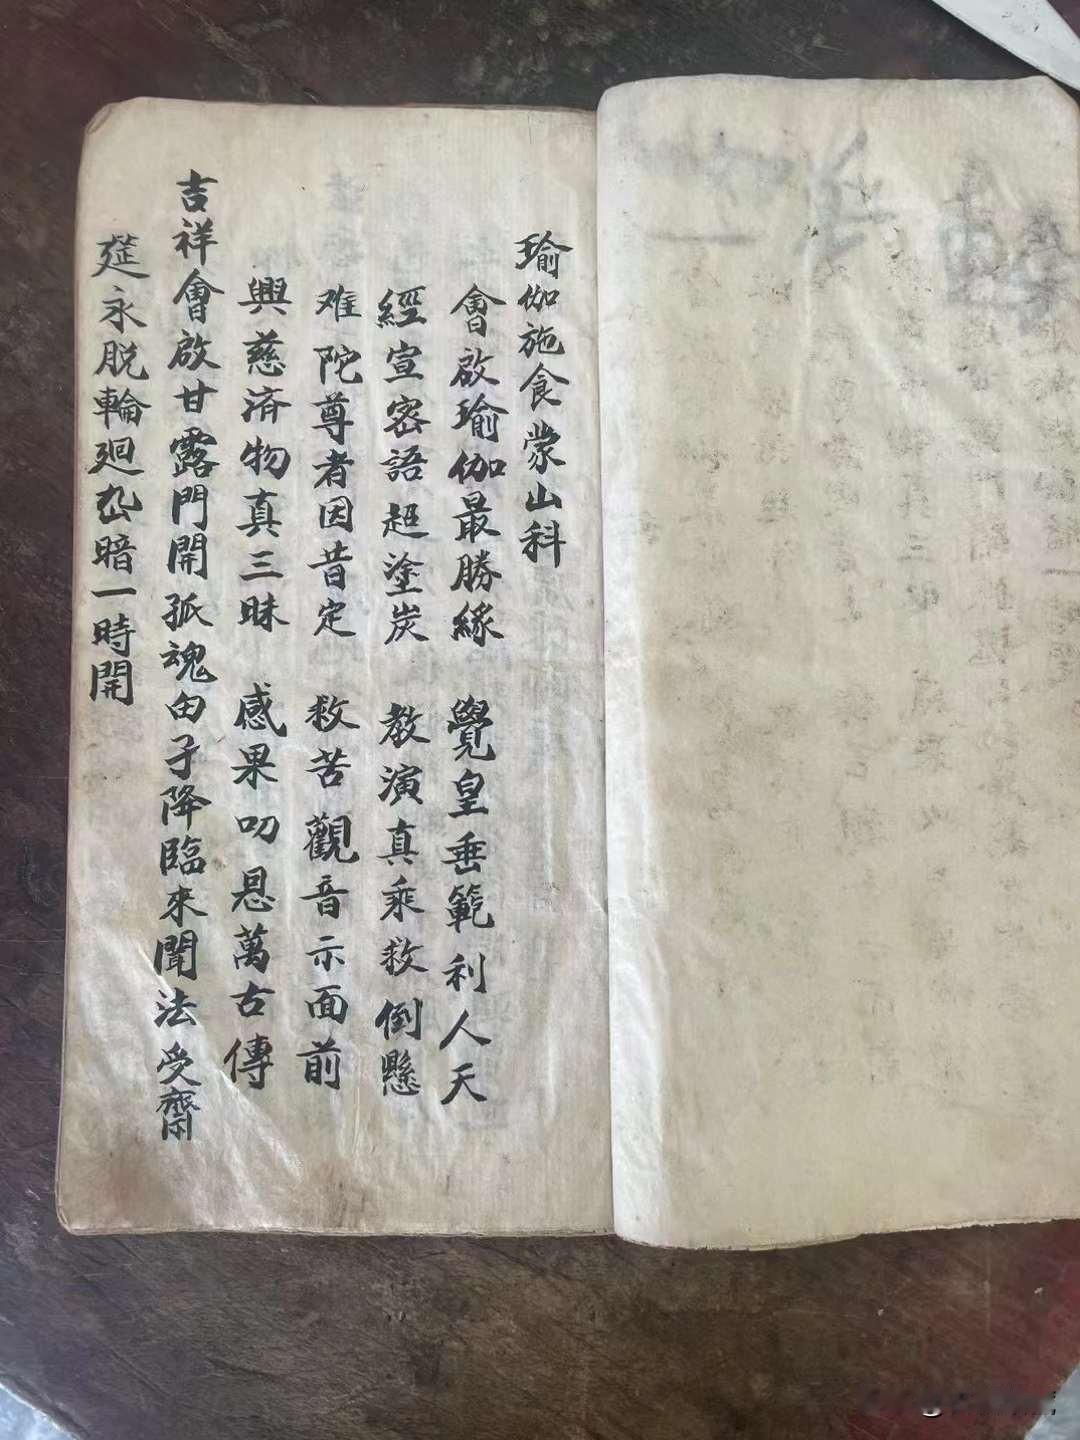 瑜伽施食蒙山科
會啟瑜伽最勝緣 覺皇垂範利人天
經宣密語超塗炭 教演真乘救倒懸
难陀尊者因昔定 救苦觀音示面前
興慈済物真三昧 感果叨恩萬古傳
吉祥會啟甘露門開孤魂由子降臨來聞法受齋
筵永脱輪廻幽暗一時開